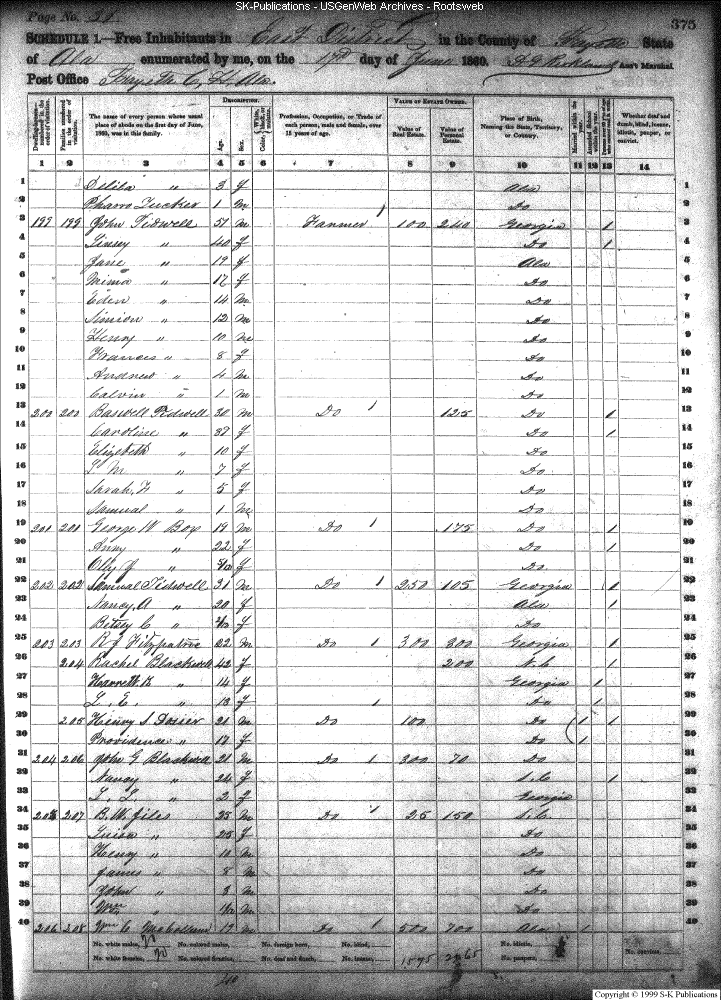 SK-Publications - USGenWeb Archives - Rootsweb
Page No. 31
375
SCHEDULE 1.—Free Inhabitants in East District in the County of Fayette State
of Ala enumerated by me, on the 17th day of June 1860. Ass't Marshal
Post Office Fayette C. H. Ala.
DESCRIPTION. VALUE OF ESTATE OWNED.
Dwelling-houses numbered in the order of visitation. Families numbered in the order of visitation. The name of every person whose usual place of abode on the first day of June, 1860, was in this family. Age. Sex. Color, White, black, or mulatto. Profession, Occupation, or Trade of each person, male and female, over 15 years of age. Value of Real Estate. Value of Personal Estate. Place of Birth, Naming the State, Territory, or Country. Married within the year. Attended School within the year. Whether deaf and dumb, blind, insane, idiotic, pauper, or convict.
1 2 3 4 5 6 7 8 9 10 11 12 13 14
1 Delila " 3 f Ala 1
2 Tucker 1 m Do 2
3 199 199 John Tidwell 51 m Farmer 1 100 240 Georgia 1 3
4 " 40 f Do 1 4
5 Jane " 19 f Ala 5
6 Mima " 17 f Do 6
7 Eden " 14 m Do 7
8 Simion " 12 m Do 8
9 Henry " 10 m Do 9
10 Frances " 8 f Do 10
11 Andrew " 4 m Do 11
12 Calvin " 1 m Do 12
13 200 200 Baswell Tidwell 30 m Do 1 125 Do 1 13
14 Caroline " 37 f Do 1 14
15 Elizebeth " 10 f Do 15
16 M " 7 f Do 16
17 Sarah, F " 5 f Do 17
18 Samual " 1 m Do 18
19 201 201 George W Box 19 m Do 1 175 Do 1 19
20 Anny " 22 f Do 1 20
21 Olly J " f Do 21
22 202 202 Samual Tidwell 31 m Do 1 250 105 Georgia 1 22
23 Nancy, A " 20 f Ala 1 23
24 Betsey C " f Do 24
25 203 203 R J Fitzpatric 22 m Do 1 300 300 Georgia 1 25
26 204 Rachel Blackwell 42 f 200 N. C 1 26
27 Harrett " 14 f Georgia 1 27
28 L. E. " 13 f 1 Do 1 28
29 205 Henry S Dosier 21 m Do 100 Do 1 1 29
30 Providence " 17 f Do 1 30
31 204 206 John G Blackwell 21 m Do 1 300 70 Do 31
32 Nancy " 24 f S. C 1 32
33 " 2 f Georgia 33
34 205 207 B. W. Jiles 25 m Do 1 25 150 S. C. 34
35 " 25 f Do 35
36 Henry " 10 m Do 36
37 James " 8 m Do 37
38 John " 3 m Do 38
39 Wm " m Do 39
40 206 208 Wm C 19 m Do 1 500 700 Ala 1 40
No. white males, 20 No. colored males, No. foreign born, No. blind, No. idiotic, No. convicts,
No. white females, 20 No. colored females, No. deaf and dumb, No. insane, 1575 2265 No. paupers,
Copyright © 1999 S-K Publications